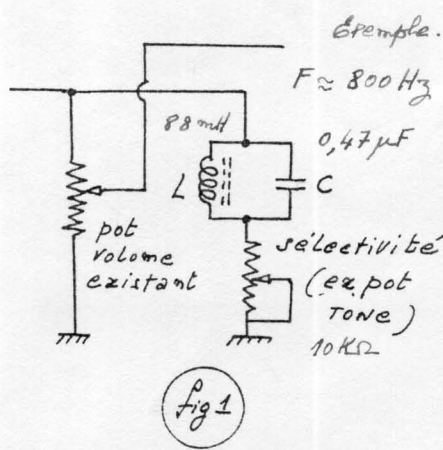 Exemple.
F ≈ 800 Hz
88 mH
0,47 µF
L
C
pot
volume
existant
sélectivité
(ex pot
TONE)
10 KΩ
fig 1